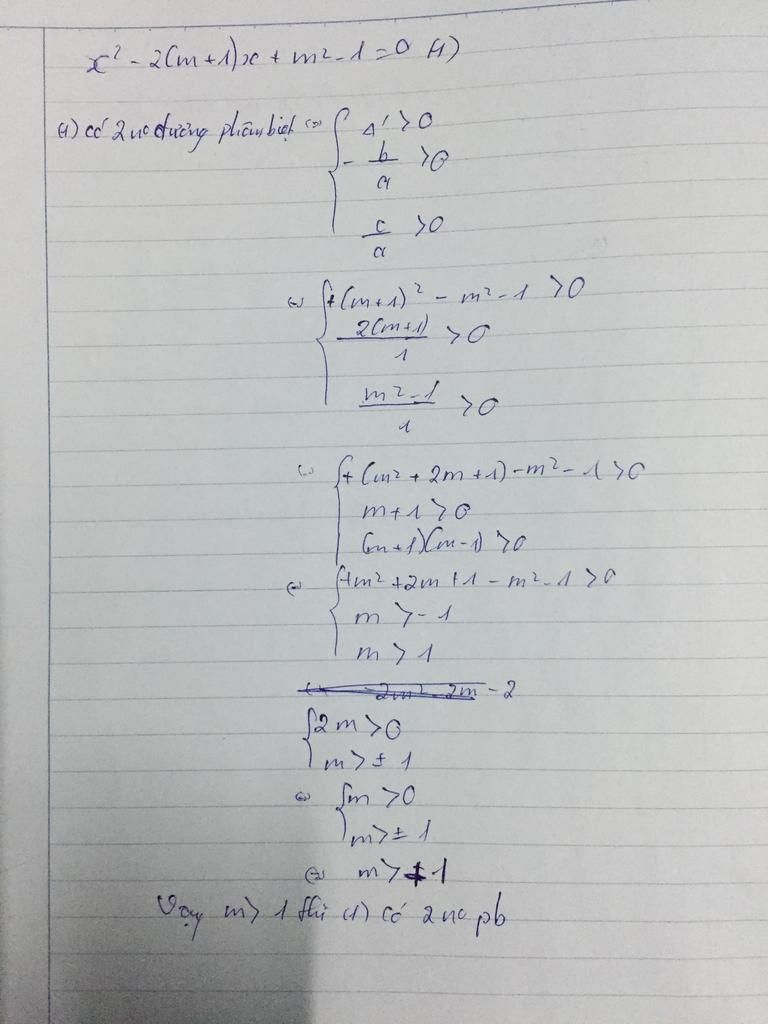 x² - 2(m+1)x + m² - 1 = 0 (1)
(1) có 2 no dương phân biệt <=> { Δ' > 0
- b/a > 0
c/a > 0
<=> { +(m+1)² - m² - 1 > 0
2(m+1)/1 > 0
m² - 1/1 > 0
<=> { +(m² + 2m + 1) - m² - 1 > 0
m + 1 > 0
(m+1)(m-1) > 0
<=> { +m² + 2m + 1 - m² - 1 > 0
m > -1
m > 1
-2m² - 2m - 2
{ 2m > 0
m > ± 1
<=> { m > 0
m > ± 1
<=> m > 1
Vậy m > 1 thì (1) có 2 no pb